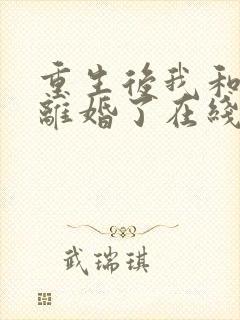 重生後我和
離婚了在綫
武瑞琪